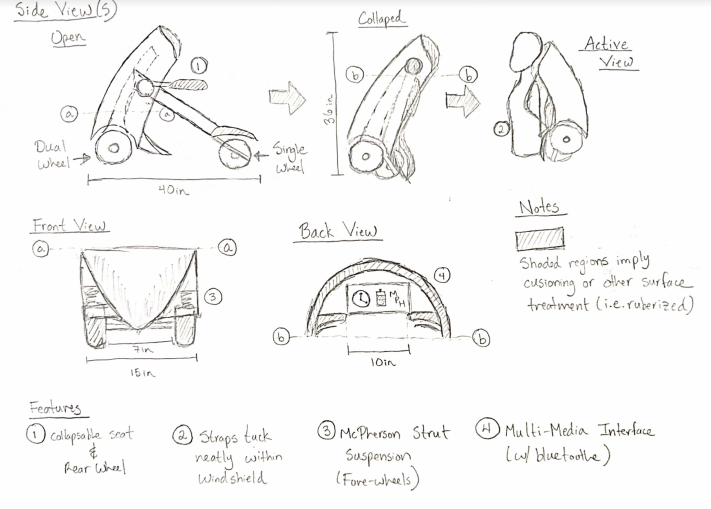 Side View(s)
Open
①
ⓐ
ⓐ
Dual
Wheel
Single
Wheel
40in
Collaped
ⓑ
ⓑ
36in
Active
View
②
Front View
ⓐ
ⓐ
③
7in
15in
Back View
④
MPH
ⓑ
ⓑ
10in
Notes
Shaded regions imply
cusioning or other surface
treatment (i.e. ruberized)
Features
① Collapsable seat
&
Rear Wheel
② Straps tuck
neatly within
Windshield
③ McPherson Strut
Suspension
(Fore-wheels)
④ Multi-Media Interface
(w/ bluetoothe)